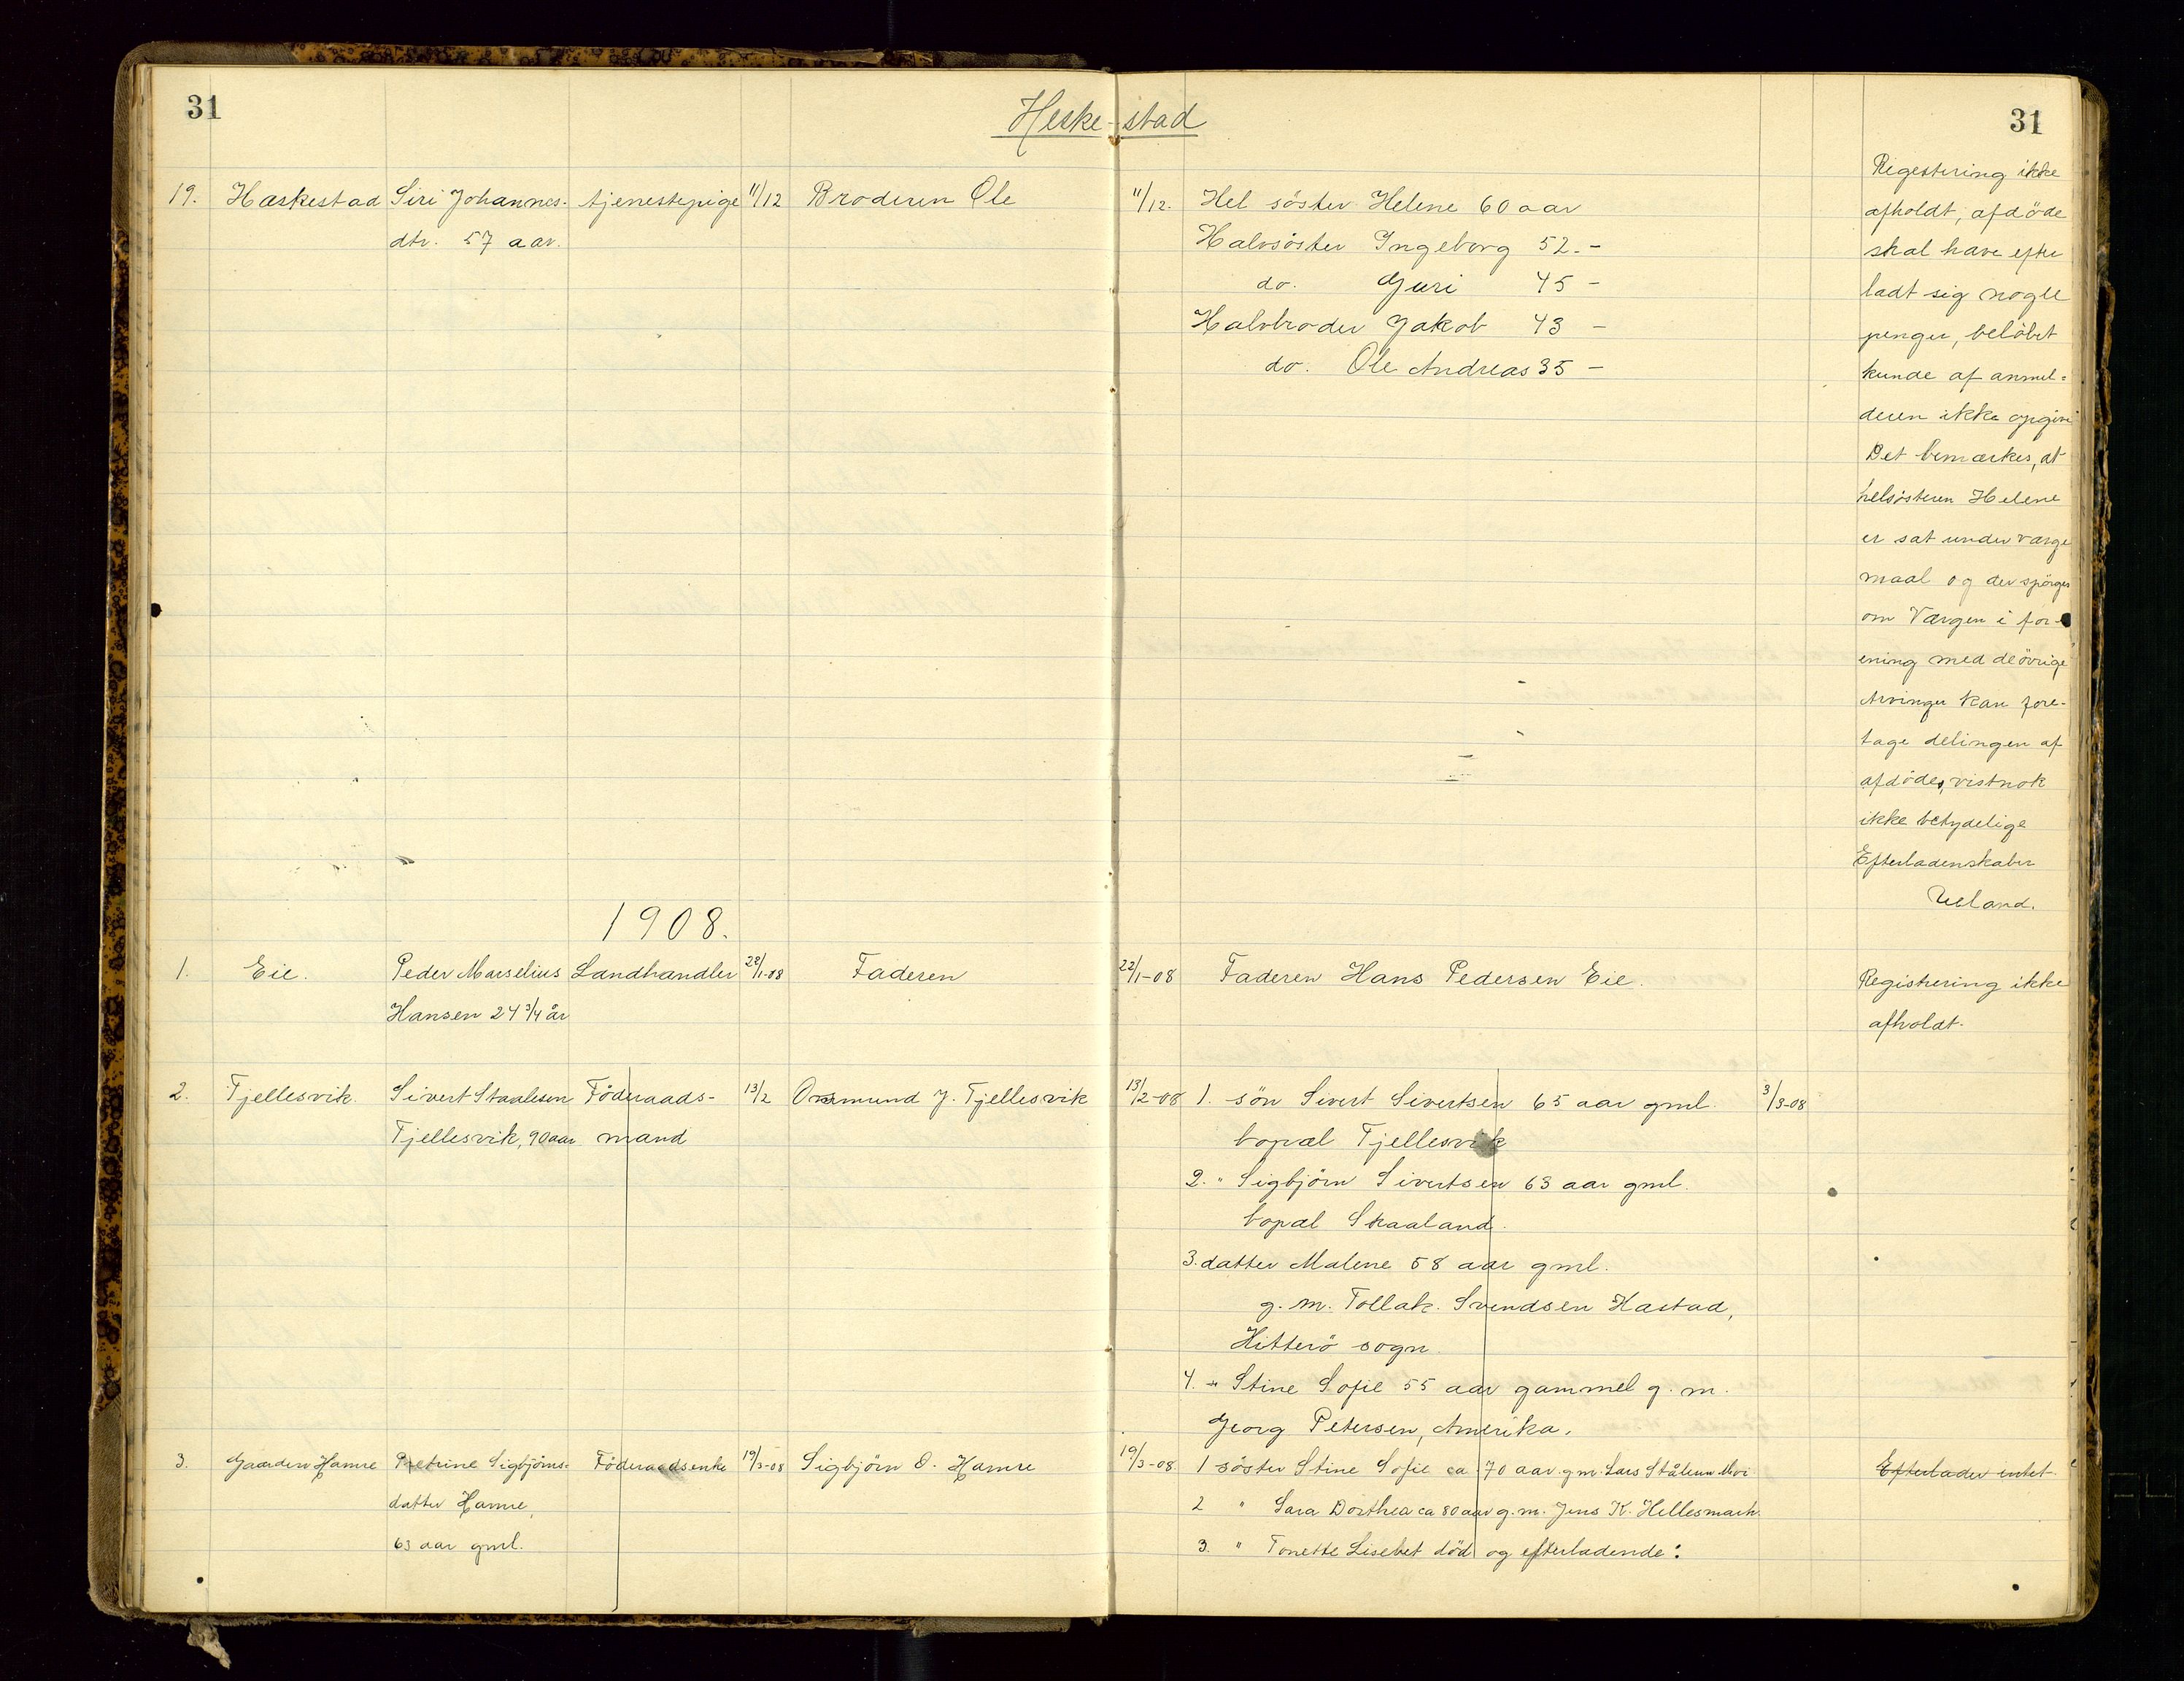 31
Heske-stad
31
19. Hæskestad Siri Johannes- tjenestepige 11/12 Broderen Ole 11/12. Hel söster Helene 60 aar
dtr. 57 aar. Halvsöster Ingeborg 52.-
do. Guri 45 -
Halvbroder Jakob 43 -
do. Ole Andreas 35 -
Regestering ikke
afholdt, afdöde
skal have efter
ladt sig nogle
penger, belöbet
kunde af anmel=
deren ikke opgive
Det bemærkes, at
helsösteren Helene
er sat under værge
maal og der spörges
om Værgen i for-
ening med de övrige
Arvinger kan fore-
tage delingen af
afdödes, vistnok
ikke betydelige
Efterladenskaber
Ueland.
1908.
1. Eie. Peder Marselius Landhandler 22/1-08 Faderen 22/1-08 Faderen Hans Pedersen Eie. Registrering ikke
Hansen 24 3/4 år afholdt.
2. Tjellesvik. Sivert Staalesen Föderaads- 13/2 Omund J. Tjellesvik 13/2-08 1. sön Sivert Sivertsen 65 aar gml. 3/3-08
Tjellesvik, 90 aar mand bopæl Tjellesvik
2. " Sigbjörn Sivertsen 63 aar gml.
bopæl Skaaland.
3. datter Malene 58 aar gml.
g. m. Tollak. Svendsen Hastad,
Hitterö sogn.
4. " Stine Sofie 55 aar gammel g. m.
Georg Petersen, Amerika.
3. Gaarden Hamre Petrine Sigbjörns- Föderaadsenke 19/3-08 Sigbjörn O. Hamre 19/3-08 1 söster Stine Sofie ca 70 aar g m. Lars Stålesen Efterlader intet.
datter Hamre, 2 " Sara Dorthea ca 80 aar g. m. Jens K. Hellesmark.
63 aar gml. 3. " Tonette Lisebet död og efterladende: